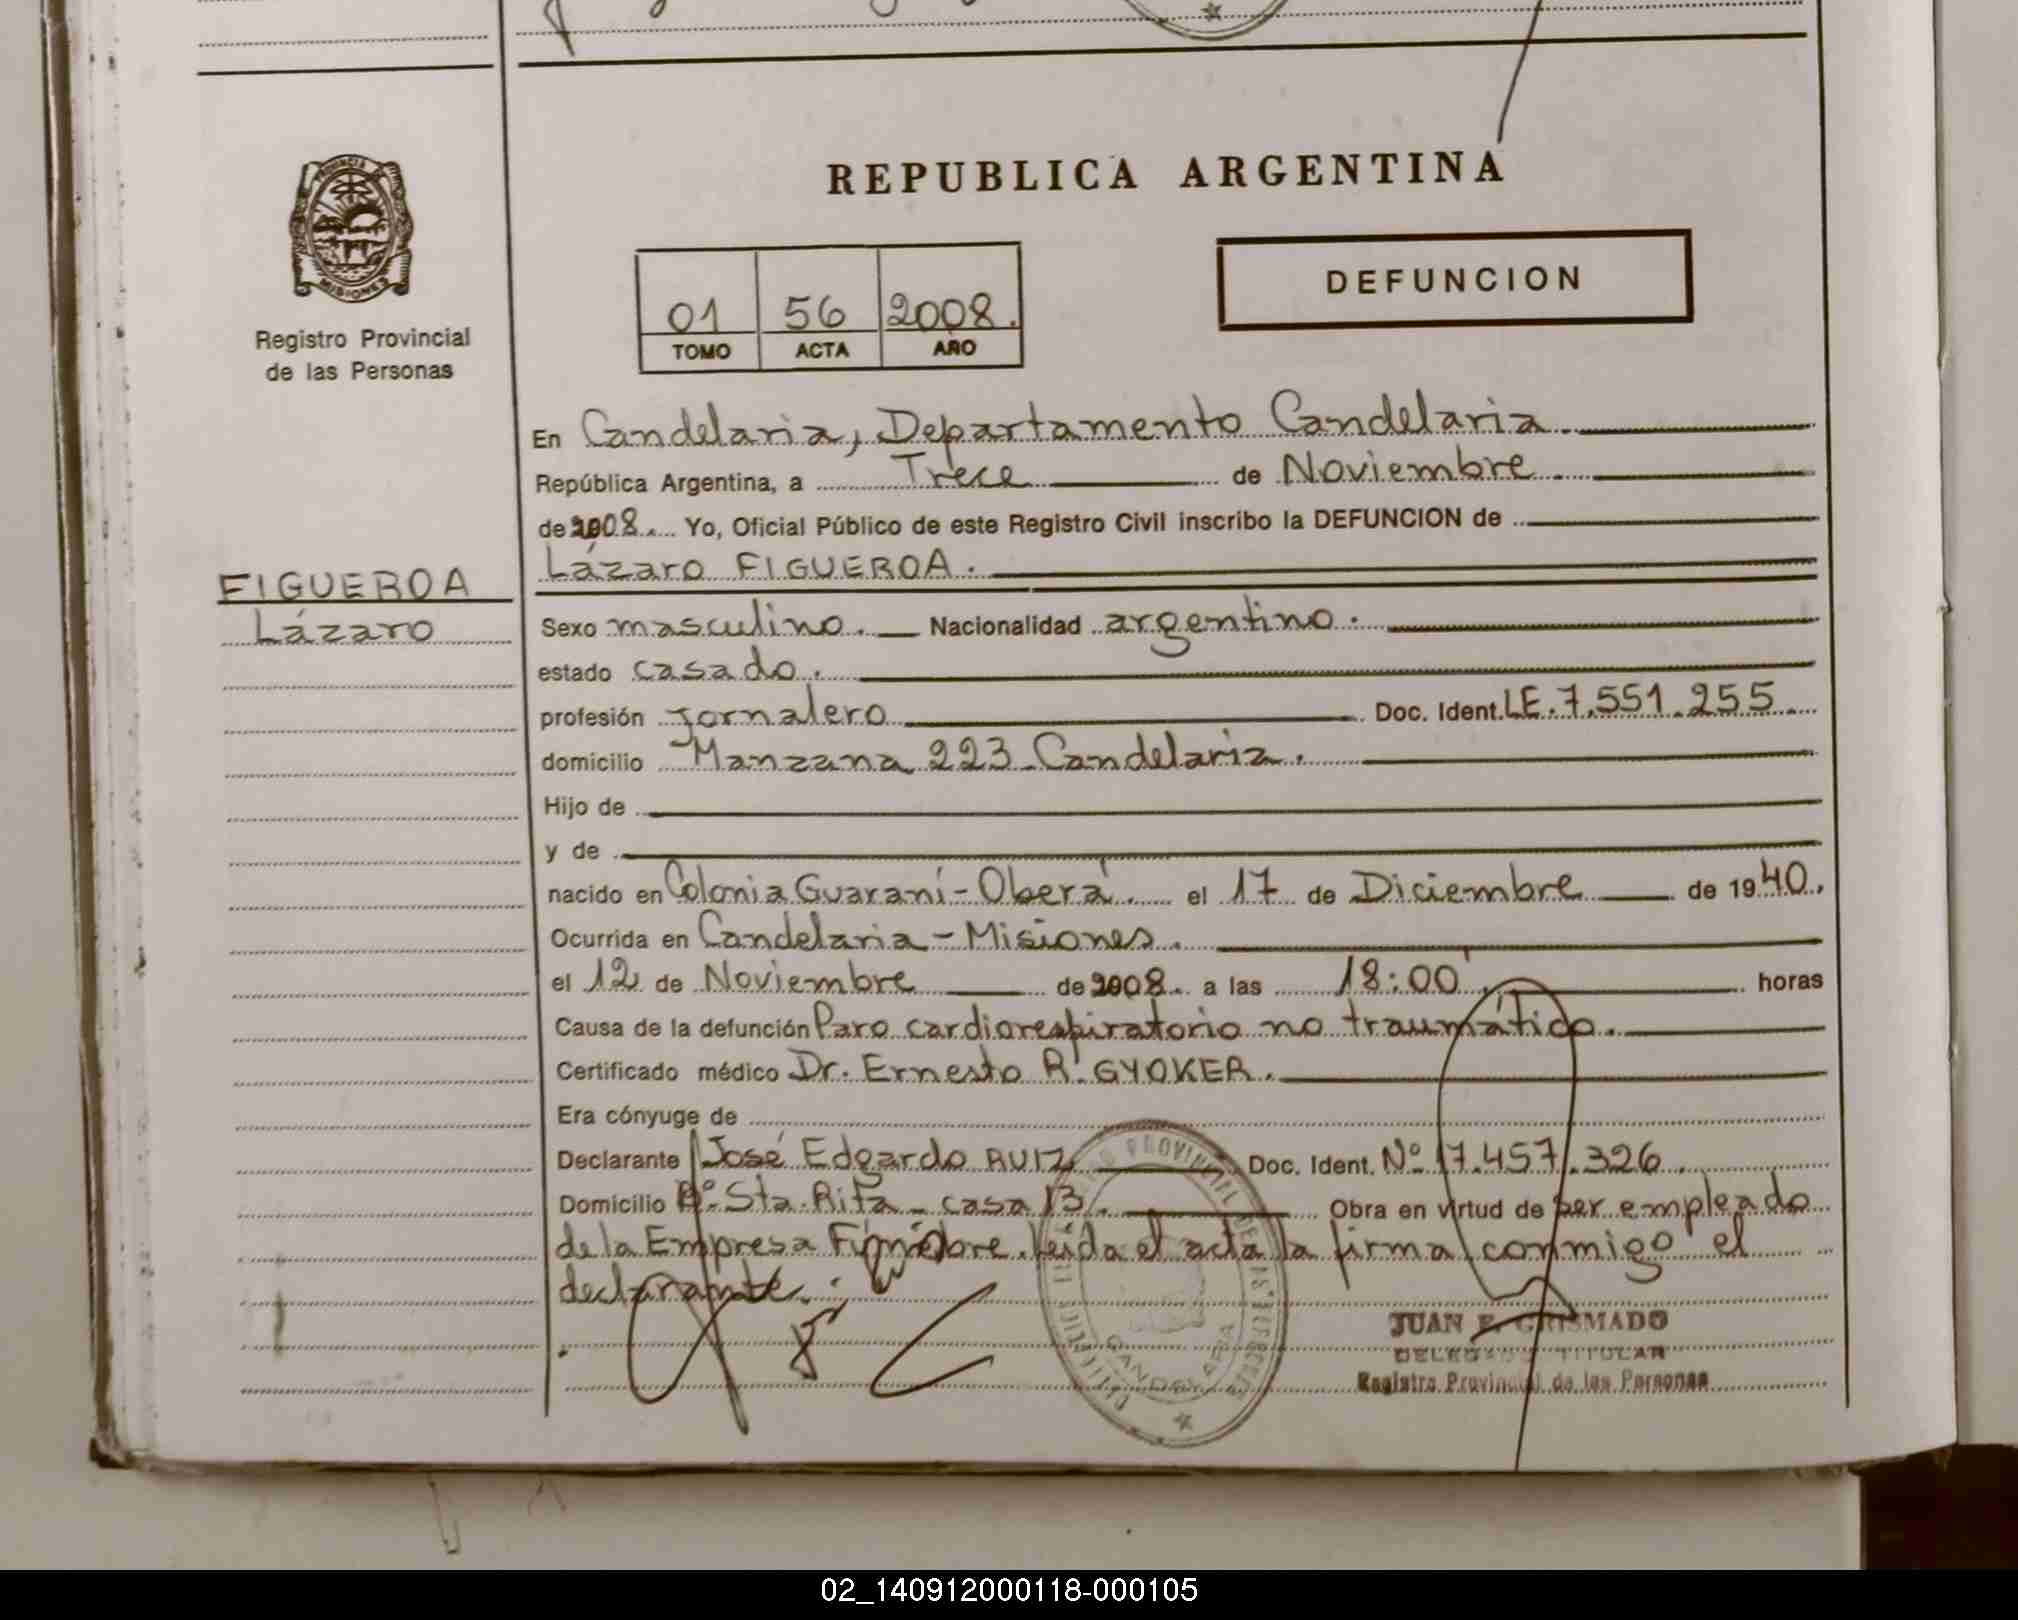 PROVINCIA
MISIONES
Registro Provincial
de las Personas
FIGUEROA
Lázaro
REPUBLICA ARGENTINA
01 56 2008.
TOMO ACTA AÑO
DEFUNCION
En Candelaria, Departamento Candelaria.
República Argentina, a Trece de Noviembre
de 2008. Yo, Oficial Público de este Registro Civil inscribo la DEFUNCION de
Lázaro FIGUEROA.
Sexo masculino. Nacionalidad argentino.
estado casado.
profesión Jornalero Doc. Ident. LE. 7.551.255
domicilio Manzana 223 - Candelaria.
Hijo de
y de
nacido en Colonia Guaraní - Oberá. el 17 de Diciembre de 1940.
Ocurrida en Candelaria - Misiones.
el 12 de Noviembre de 2008. a las 18:00 horas
Causa de la defunción Paro cardiorespiratorio no traumático.
Certificado médico Dr. Ernesto R. GYOKER.
Era cónyuge de
Declarante José Edgardo RUIZ Doc. Ident. Nº 17.457.326.
Domicilio Bº. Sta. Rita - casa 13. Obra en virtud de ser empleado
de la Empresa Fúnebre. Leida el acta la firma conmigo el
declarante.
CANDELARIA
JUAN E. GRISMADO
DELEGADO TITULAR
Registro Provincial de las Personas
02_140912000118-000105